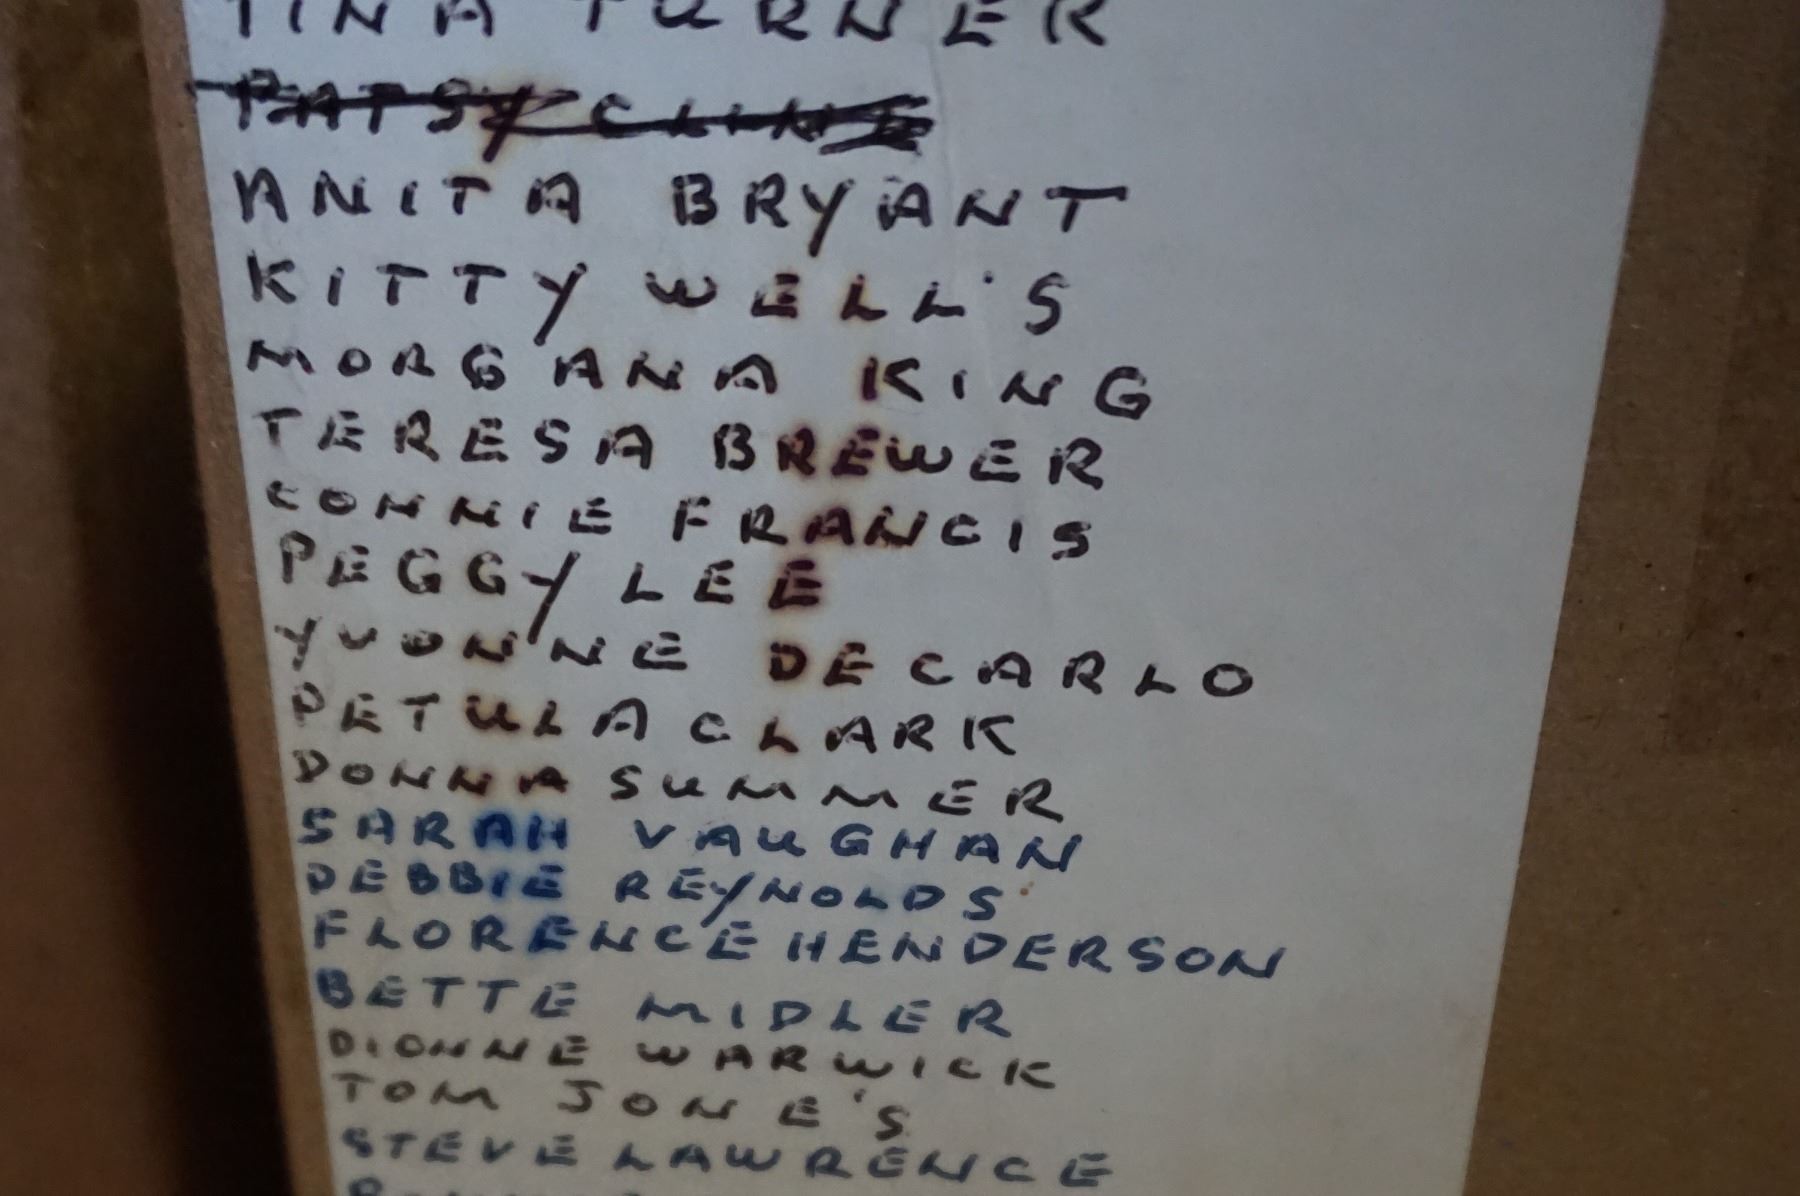 TINA TURNER
PATSY CLINE
ANITA BRYANT
KITTY WELL'S
MORGANA KING
TERESA BREWER
CONNIE FRANCIS
PEGGY LEE
YVONNE DECARLO
PETULA CLARK
DONNA SUMMER
SARAH VAUGHAN
DEBBIE REYNOLDS
FLORENCE HENDERSON
BETTE MIDLER
DIONNE WARWICK
TOM JONE'S
STEVE LAWRENCE